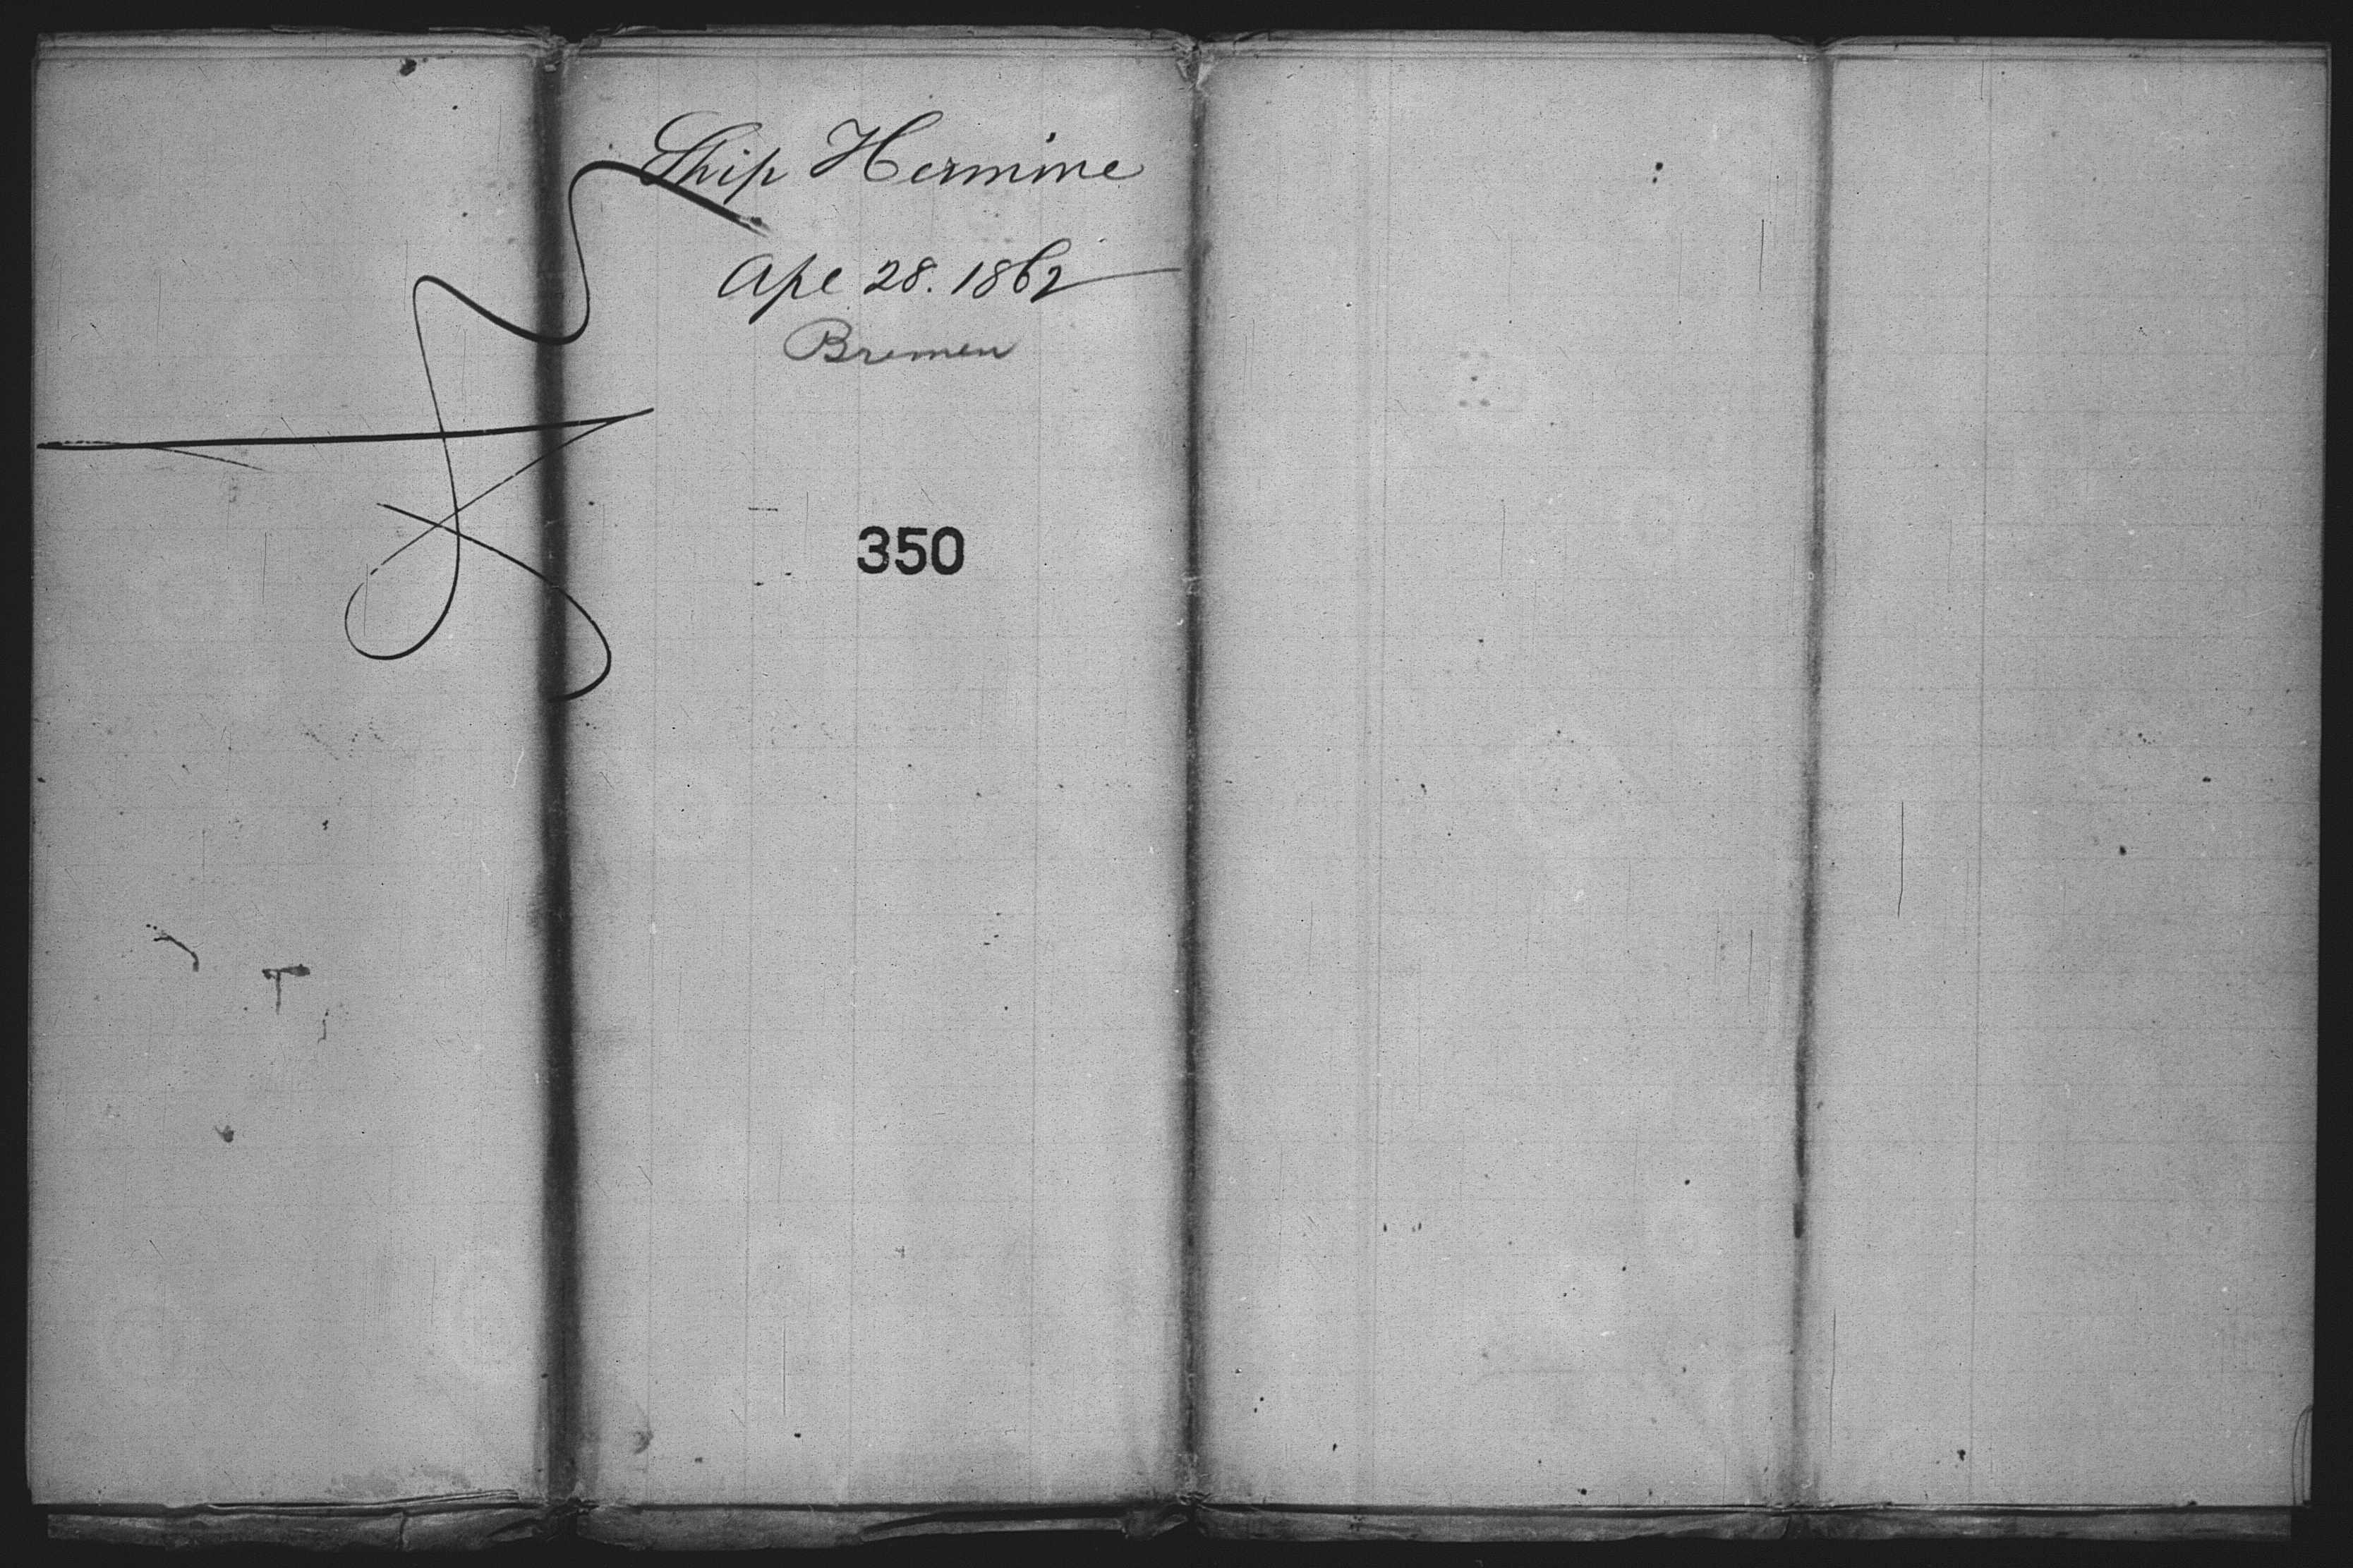 Ship Hermine
Apl 28. 1862
Bremen
350